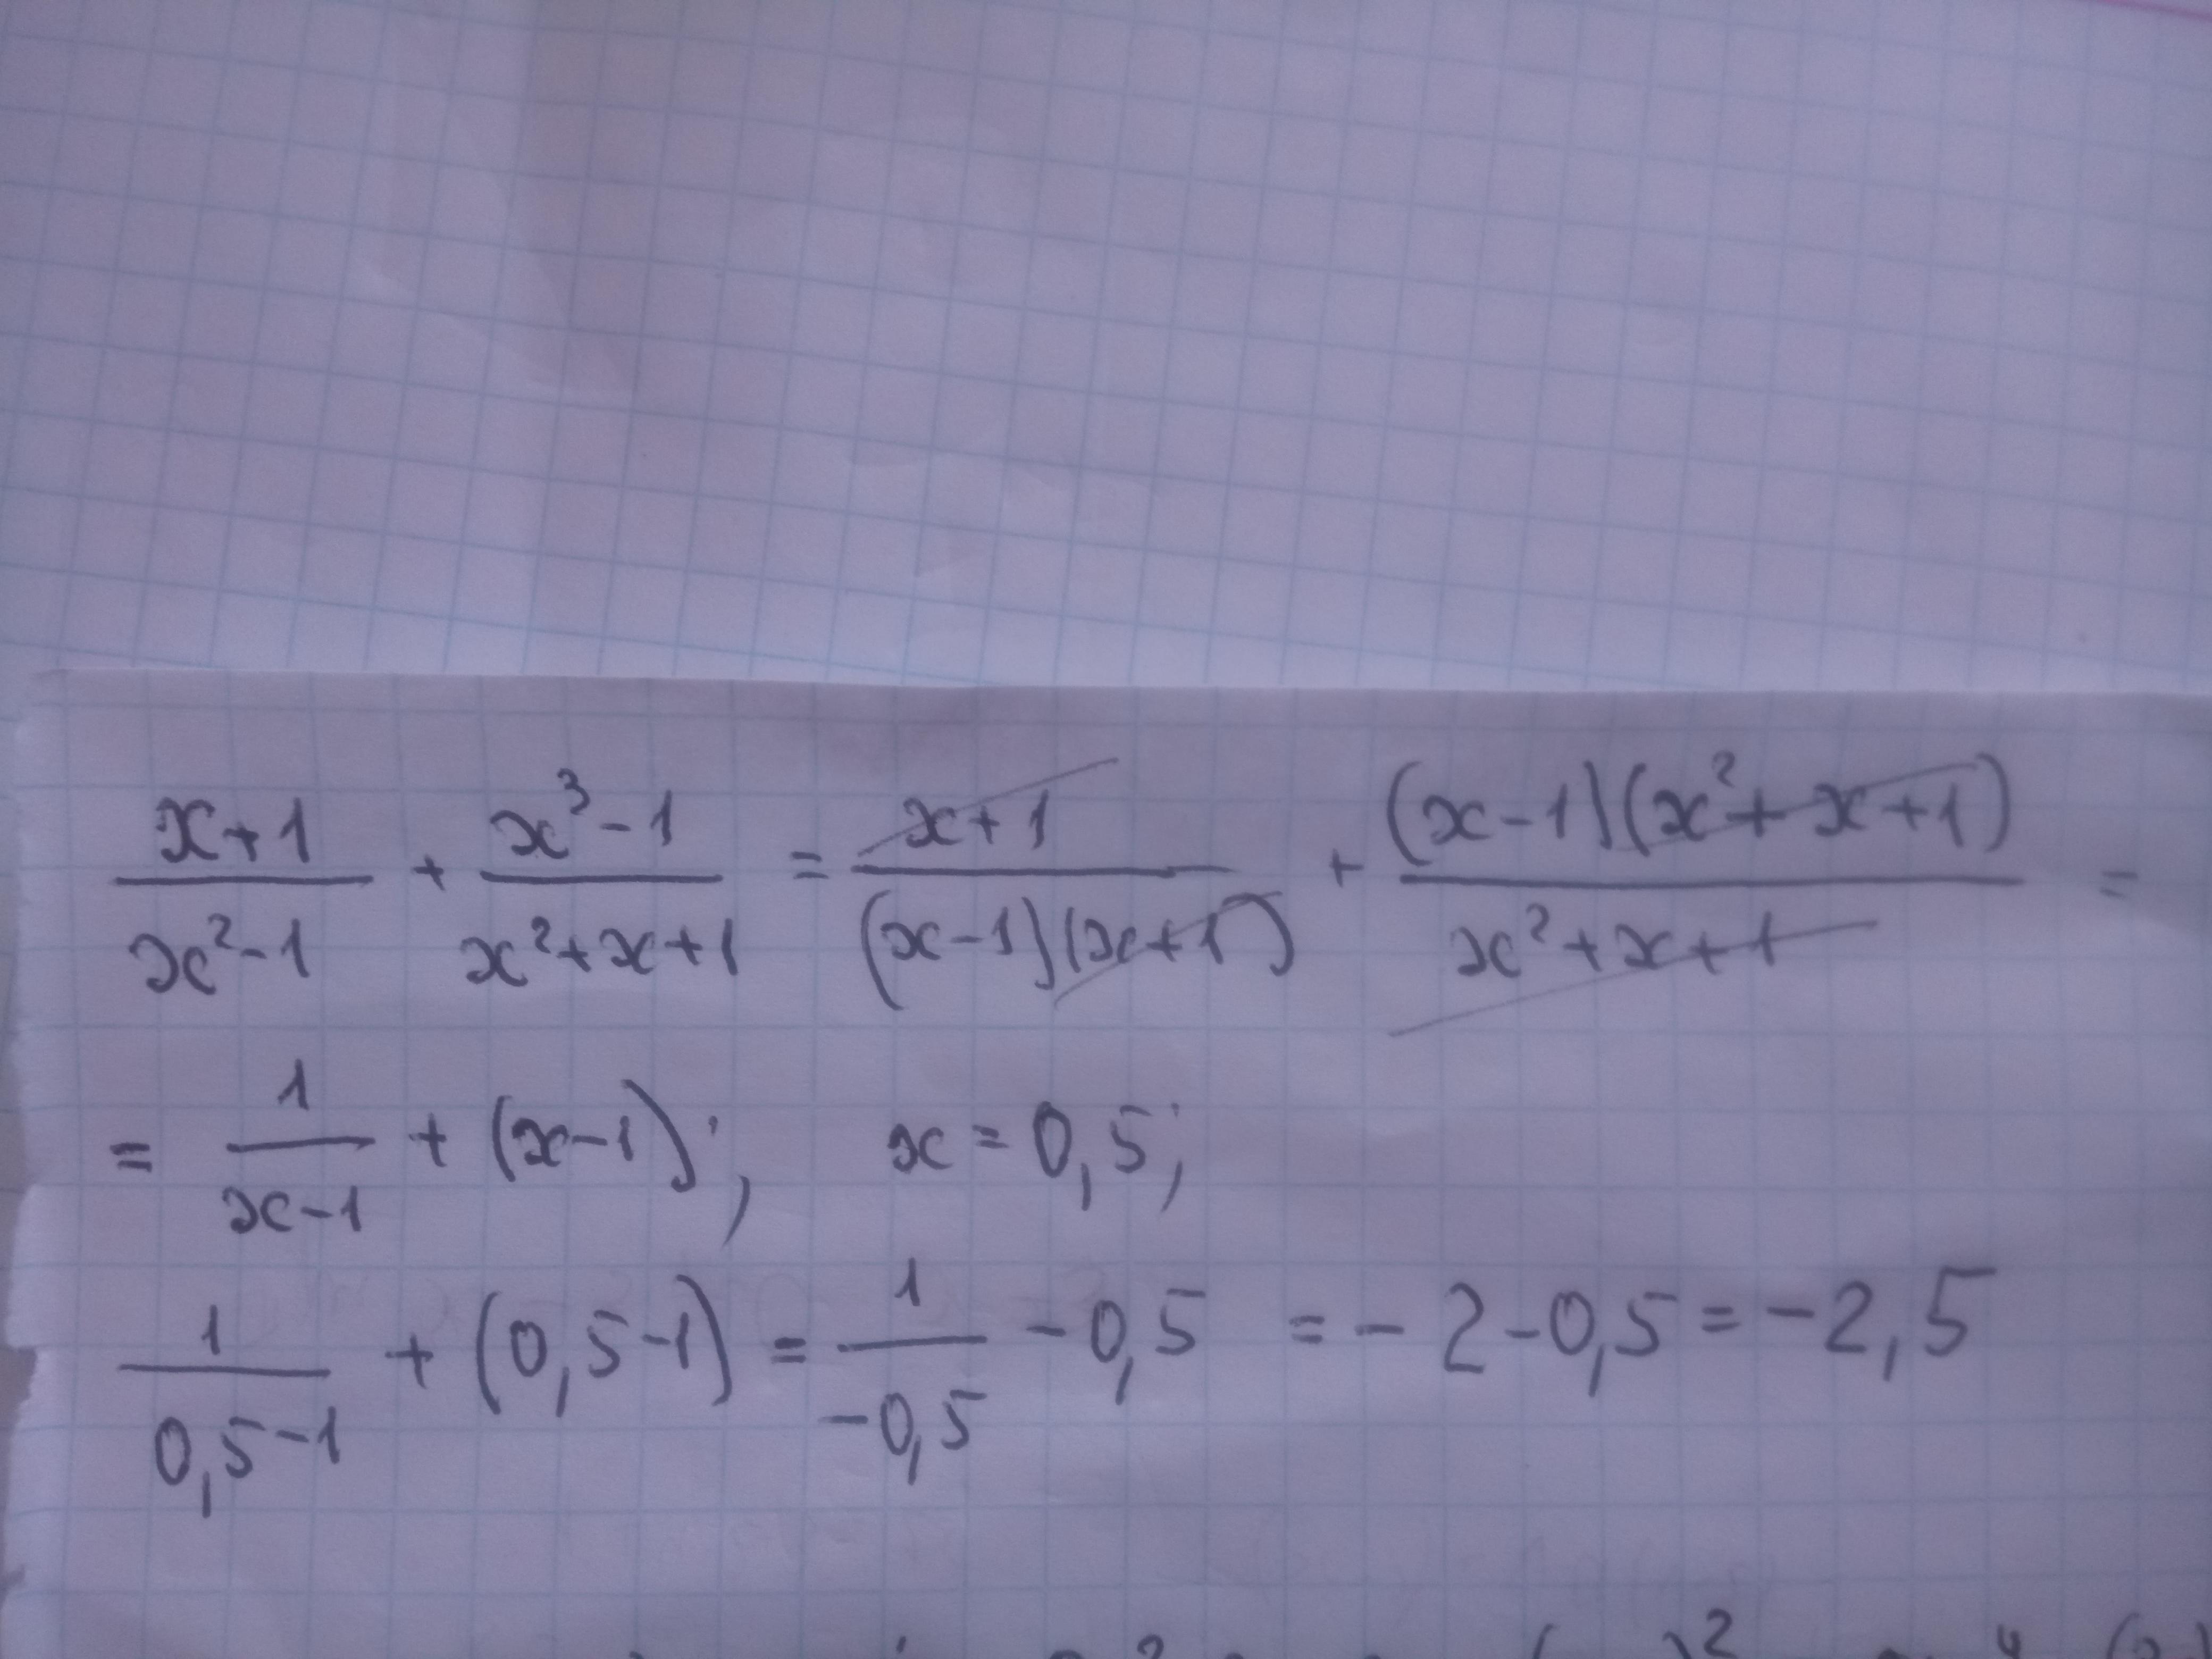 (x+1)/(x²-1) + (x³-1)/(x²+x+1) = (x+1)/((x-1)(x+1)) + ((x-1)(x²+x+1))/(x²+x+1) =
= 1/(x-1) + (x-1); x = 0,5;
1/(0,5-1) + (0,5-1) = 1/(-0,5) - 0,5 = - 2 - 0,5 = - 2,5